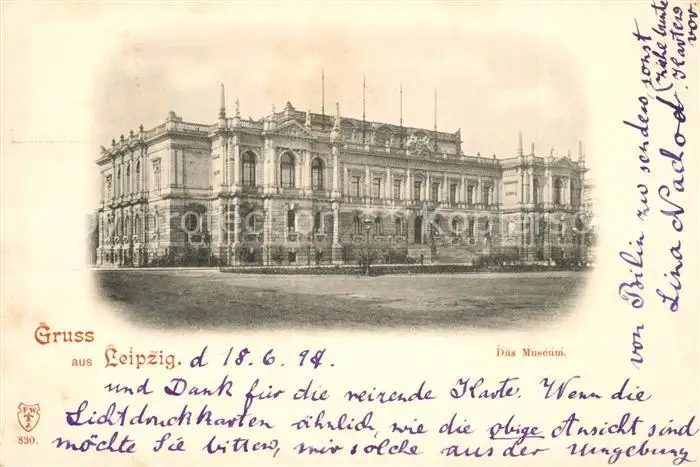 Gruss
aus Leipzig. d 18. 6. 98.
Das Museum.
und Dank für die reizende Karte. Wenn die
Lichtdruckkarten ähnlich, wie die obige Ansicht sind
möchte Sie bitten, mir solche aus der Umgebung
von Bilin zu senden, sonst
(ziehe bunte
Karten
vor.
Lina Nachod
F W
830.